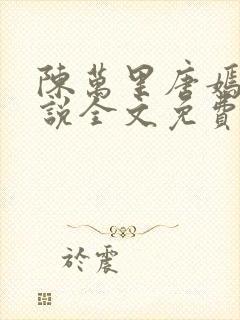 陳萬里唐嫣
説全文免費
於震